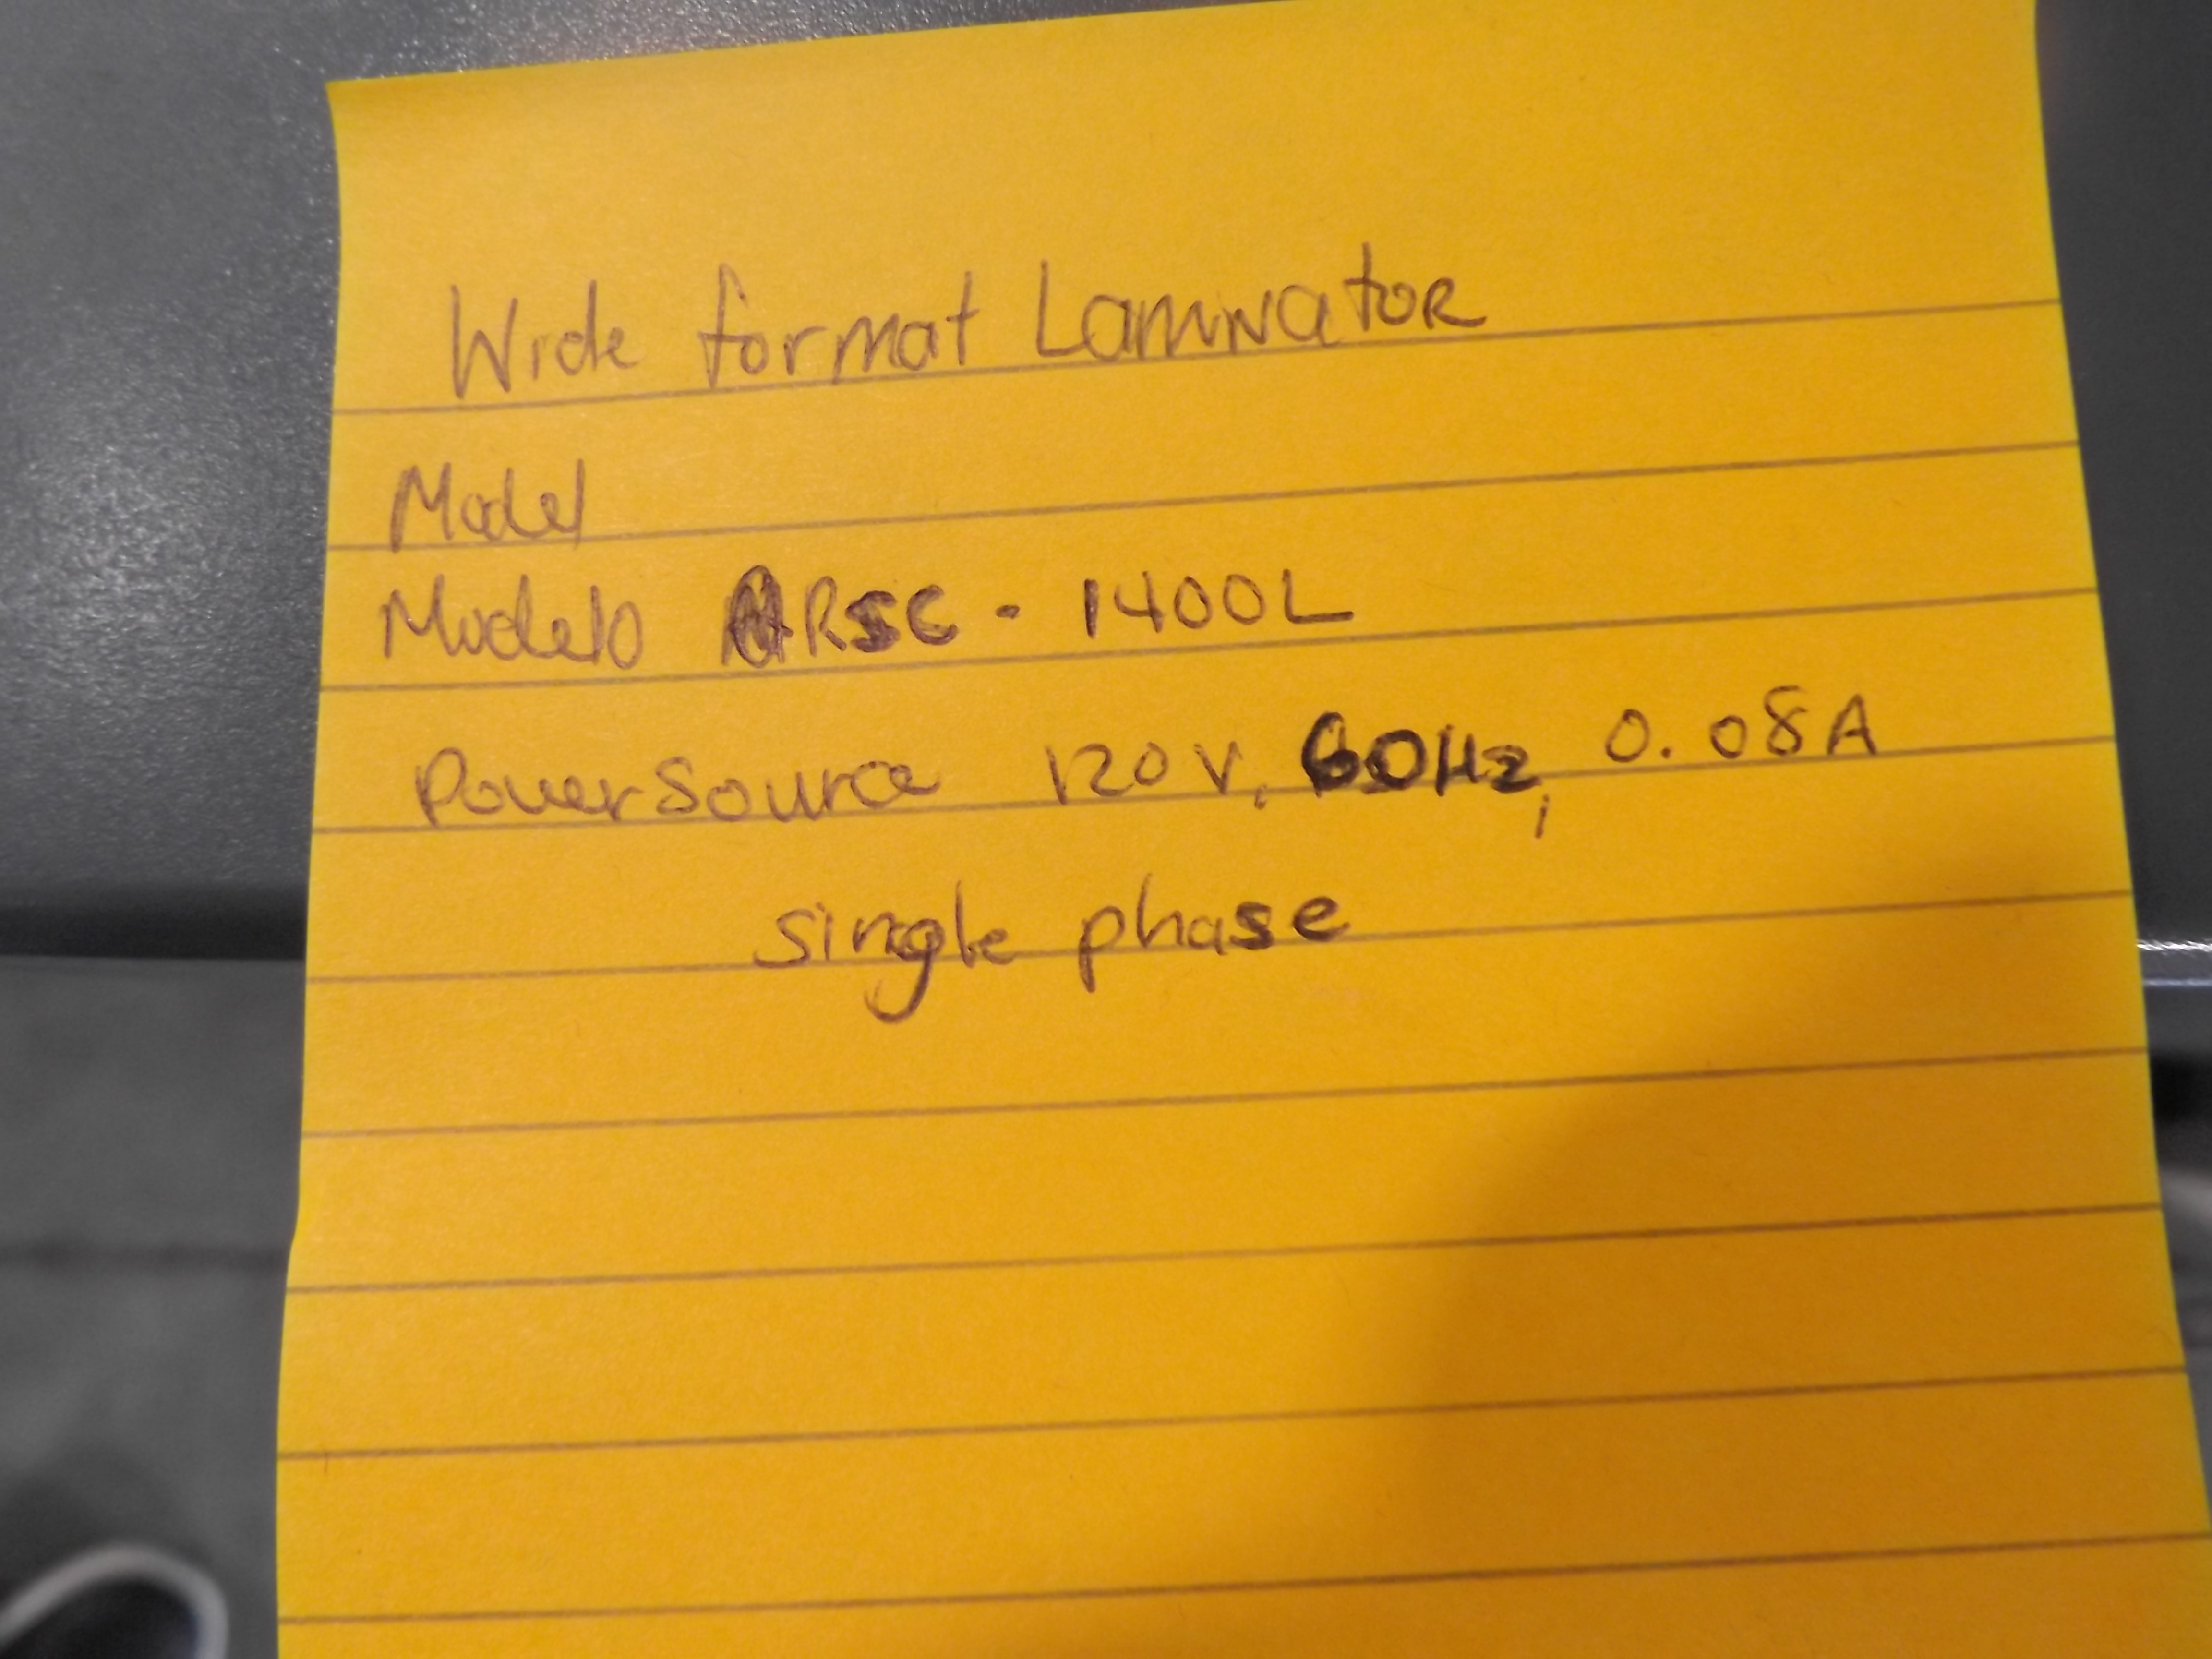 Wide format Laminator
Model
Modelo ARSC - 1400L
Power Source 120 V, 60Hz, 0.08A
single phase